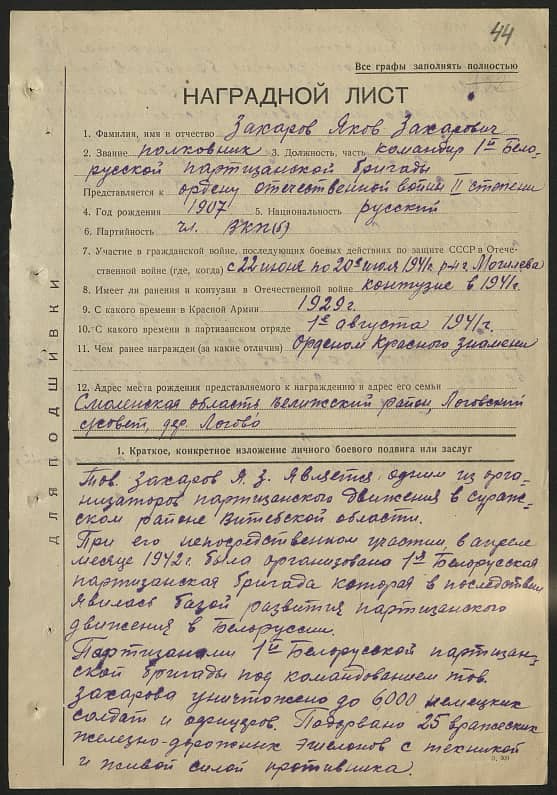 44
Все графы заполнять полностью
НАГРАДНОЙ ЛИСТ
1. Фамилия, имя и отчество Захаров Яков Захарович
2. Звание полковник 3. Должность, часть командир 1й Бело-
русской партизанской бригады
Представляется к ордену отечественной войны II степени
4. Год рождения 1907 5. Национальность русский
6. Партийность чл. ВКП(б)
7. Участие в гражданской войне, последующих боевых действиях по защите СССР в Отече-
ственной войне (где, когда) с 22 июня по 20е июля 1941г. р-н г. Могилева
8. Имеет ли ранения и контузии в Отечественной войне контузие в 1941г.
9. С какого времени в Красной Армии 1929г.
10. С какого времени в партизанском отряде 1го августа 1941г.
11. Чем ранее награжден (за какие отличия) Орденом Красного знамени
12. Адрес места рождения представляемого к награждению и адрес его семьи
Смоленская область Велижский район, Логовский
с/совет, дер. Логово
1. Краткое, конкретное изложение личного боевого подвига или заслуг
Тов. Захаров Я. З. является одним из орга-
низаторов партизанского движения в сураж-
ском районе Витебской области.
При его непосредственном участии, в апреле
месяце 1942г. была организовано 1я Белорусская
партизанская бригада которая в последствии
явилась базой развития партизанского
движения в Белоруссии.
Партизанами 1й Белорусской партизан-
ской бригады под командованием тов.
Захарова уничтожено до 6000 немецких
солдат и офицеров. Подорвано 25 вражеских
железно-дорожных эшелонов с техникой
и живой силой противника.
ДЛЯ ПОДШИВКИ